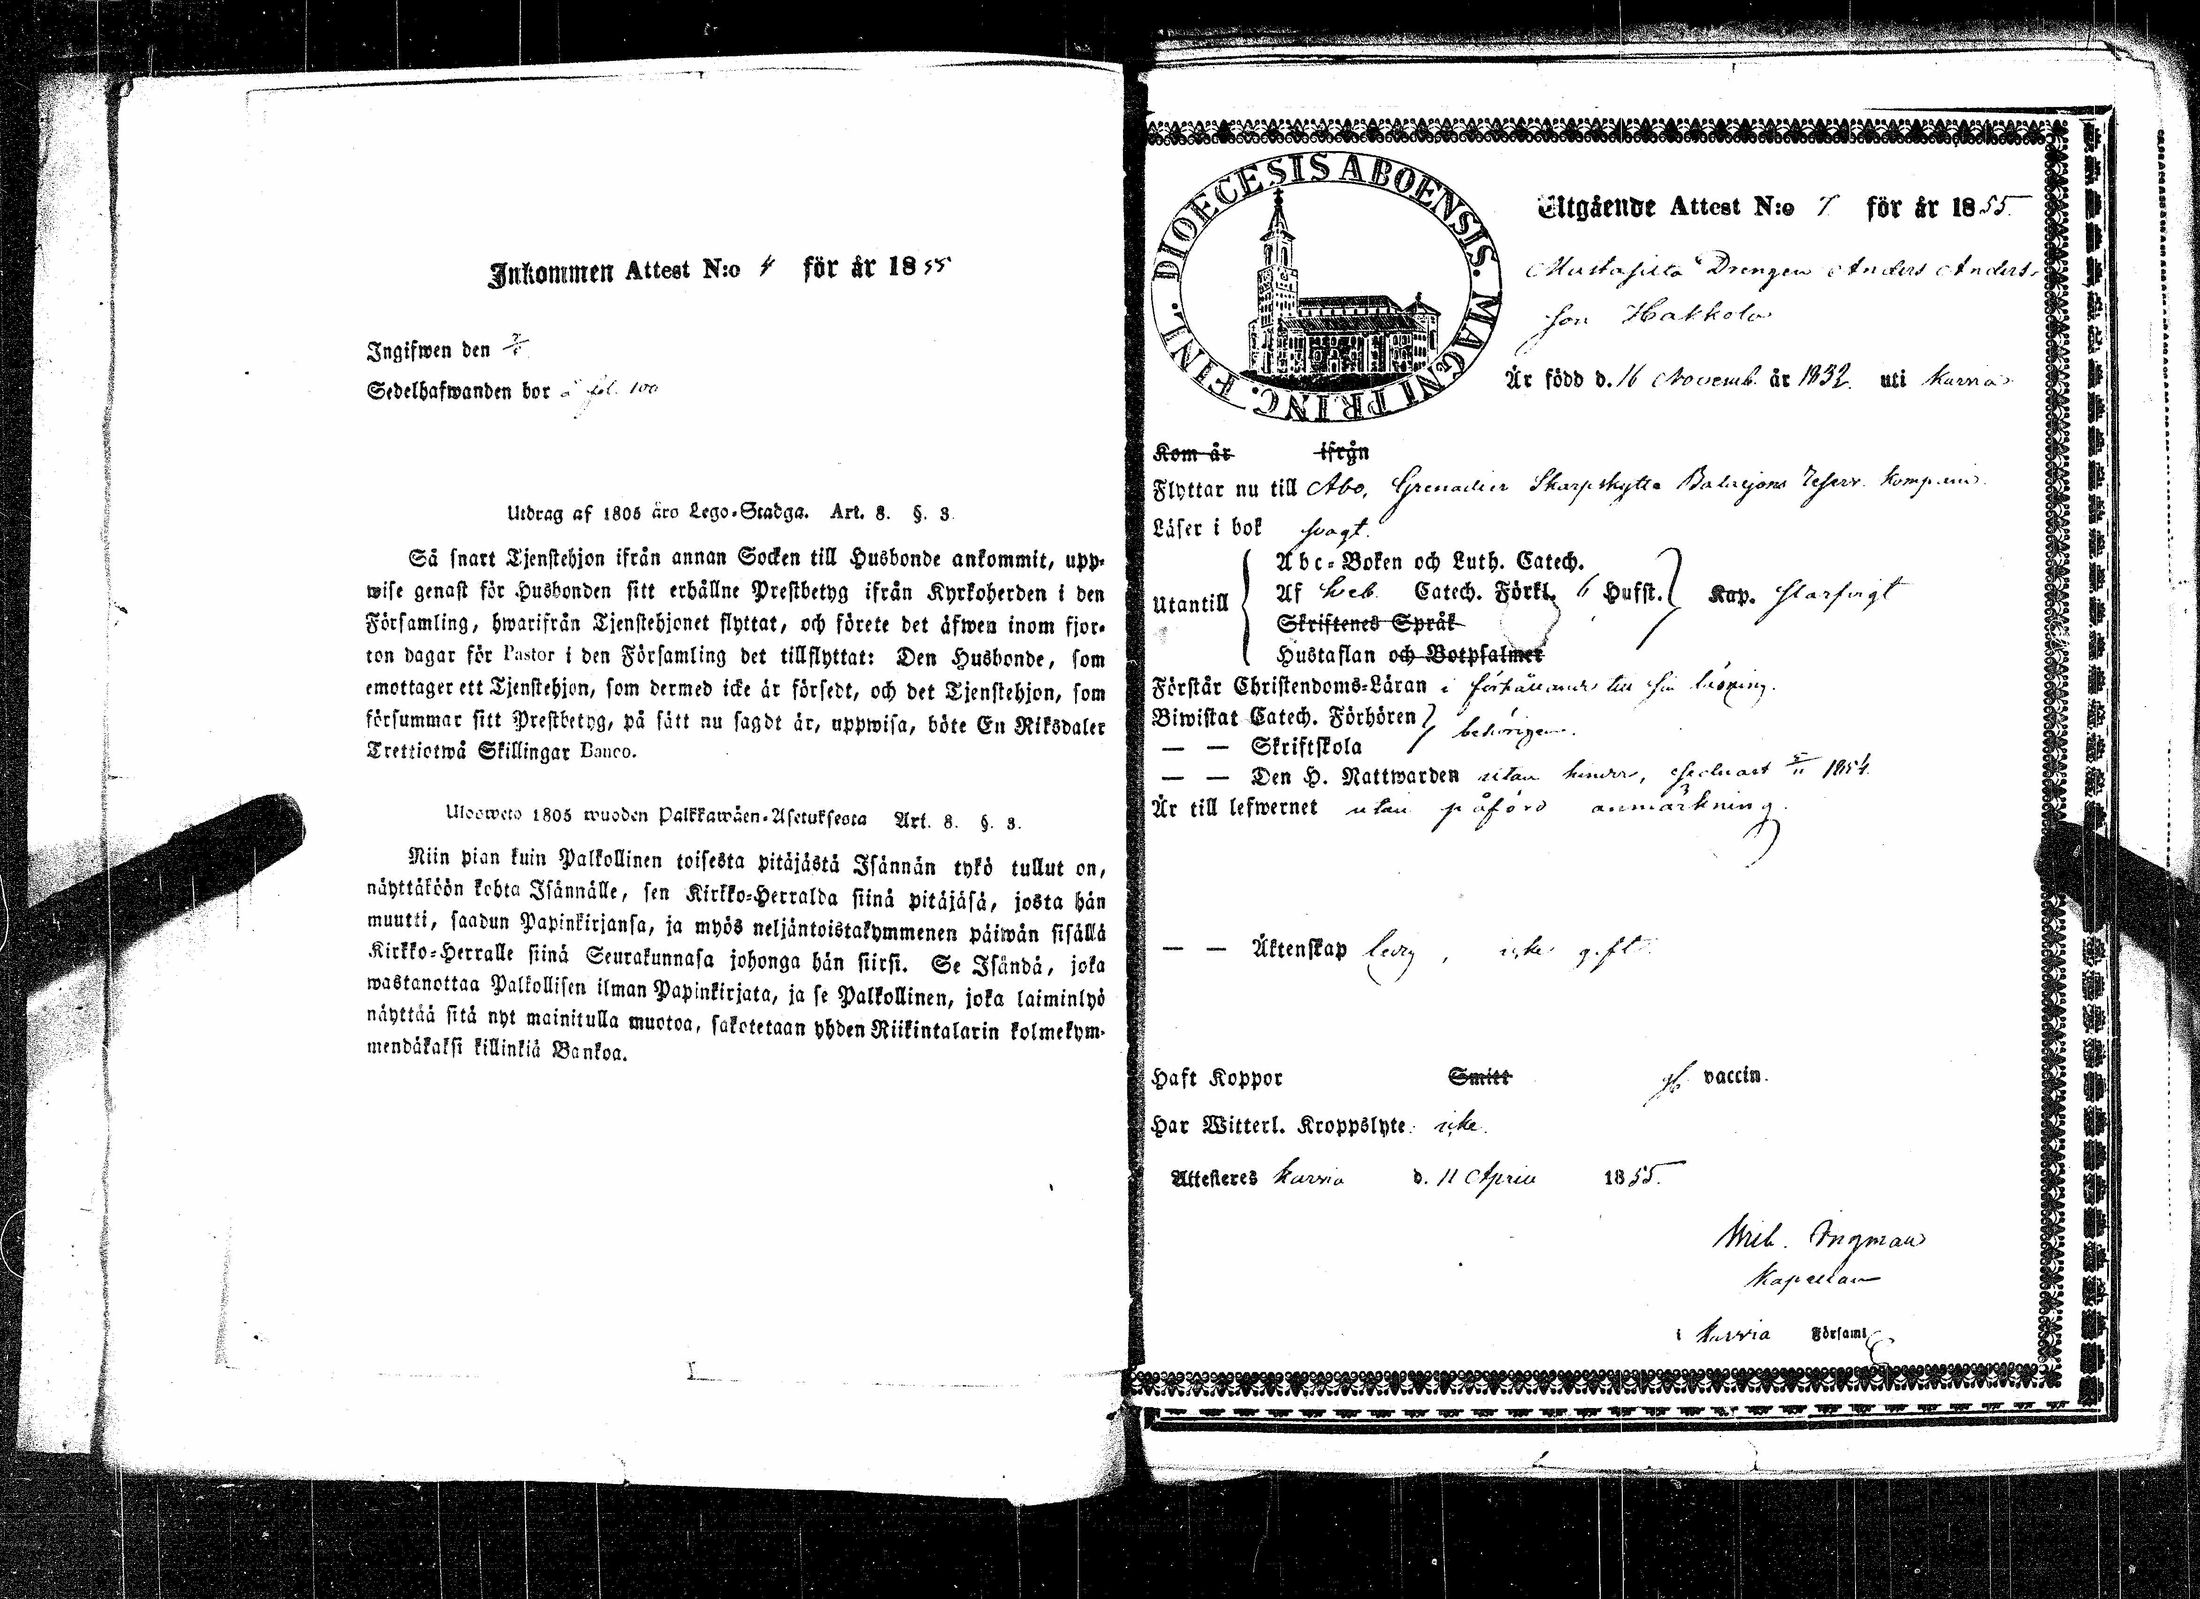 Inkommen Attest N:o 4 för år 1855
Ingifwen den
Sedelhafwanden bor å fol. 100
Utdrag af 1805 års Lego-Stadga. Art. 8. §. 3.
Så snart Tjenstehjon ifrån annan Socken till Husbonde ankommit, upp-
wise genast för Husbonden sitt erhållne Prestbetyg ifrån Kyrkoherden i den
Församling, hwarifrån Tjenstehjonet flyttat, och förete det äfwen inom fjor-
ton dagar för Pastor i den Församling det tillflyttat: Den Husbonde, som
emottager ett Tjenstehjon, som dermed icke är försedt, och det Tjenstehjon, som
försummar sitt Prestbetyg, på sätt nu sagdt är, uppwisa, böte En Riksdaler
Trettiotwå Skillingar Banco.
Ulosweto 1805 wuoden Palkkawäen-Asetuksesta Art. 8. §. 3.
Niin pian kuin Palkollinen toisesta pitäjästä Isännän tykö tullut on,
näyttäköön kohta Isännälle, sen Kirkko-Herralda siinä pitäjäsä, josta hän
muutti, saadun Papinkirjansa, ja myös neljäntoistakymmenen päiwän sisällä
Kirkko-Herralle siinä Seurakunnasa johonga hän siirsi. Se Isändä, joka
wastanottaa Palkollisen ilman Papinkirjata, ja se Palkollinen, joka laiminlyö
näyttää sitä nyt mainitulla muotoa, sakotetaan yhden Riikintalarin kolmekym-
mendäkaksi killinkiä Bankoa.
DIOECESIS ABOENSIS. MAGNI PRINC. FINL.
Utgående Attest N:o 7 för år 1855.
Drengen Anders Anders-
son Hakkola
Är född d. 16 Novemb. år 1832. uti Karvia
Kom år ifrån
Flyttar nu till Åbo, Grenadier Skarpskytte Bataljons Reserv. Kompani.
Läser i bok svagt.
Utantill
Abc-Boken och Luth. Catech.
Af Sveb. Catech. Förkl. 6 Hufst. Kap. Skarfvigt
Skriftenes Språk
Hustaflan och Botpsalmer
Förstår Christendoms-Läran i förhållande till sin läsning.
Biwistat Catech. Förhören behörigen.
— — Skriftskola
— — Den H. Nattwarden utan hinder, sednast 5/11 1854.
Är till lefwernet utan påförd anmärkning.
— — Äktenskap ledig, icke gift.
Haft Koppor Smitt vaccin.
Har Witterl. Kroppslyte: icke.
Attesteres Karvia d. 11 April 1855.
Wilh. Ingman
Kapellan
i Karvia Församl.